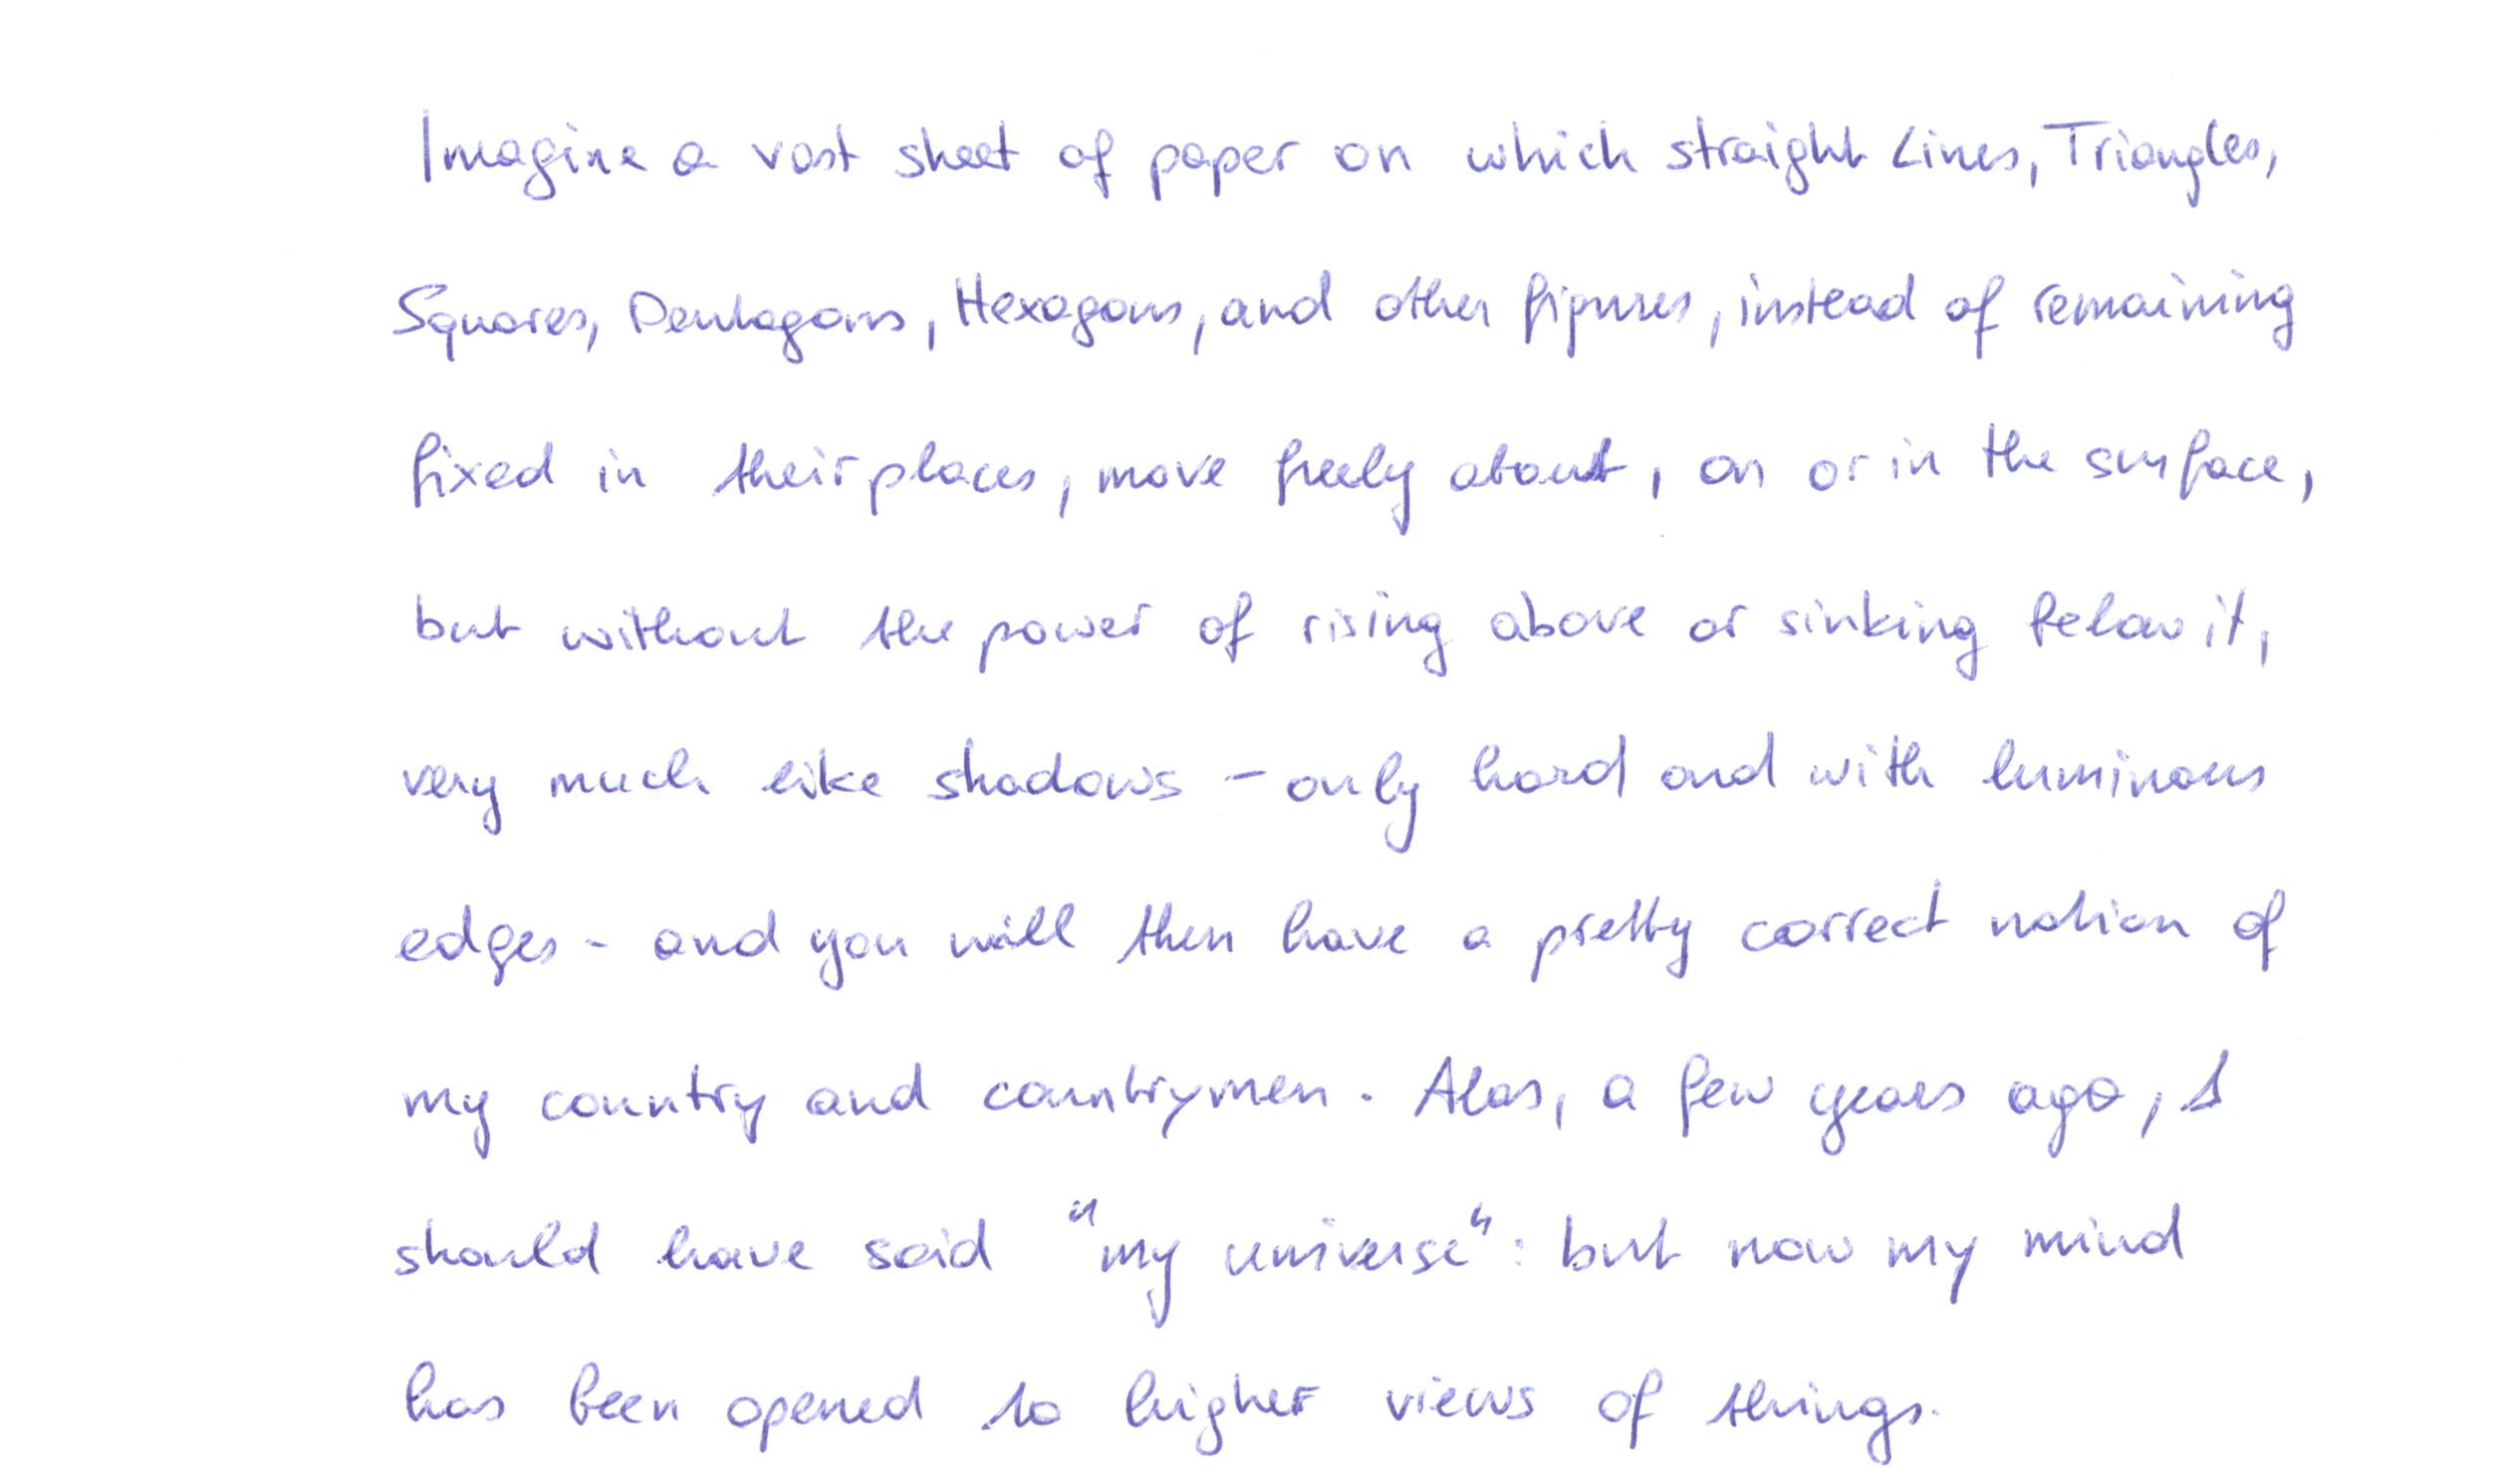 Imagine a vast sheet of paper on which straight Lines, Triangles,
Squares, Pentagons, Hexagons, and other figures, instead of remaining
fixed in their places, move freely about, on or in the surface,
but without the power of rising above or sinking below it,
very much like shadows - only hard and with luminous
edges - and you will then have a pretty correct notion of
my country and countrymen. Alas, a few years ago, I
should have said "my universe": but now my mind
has been opened to higher views of things.